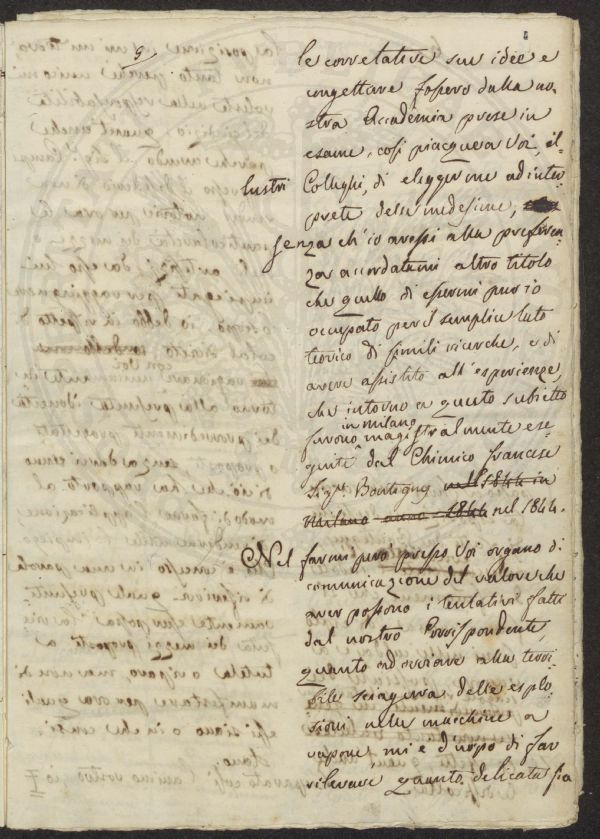 le correlative sue idee e
congetture fossero dalla no-
stra Accademia prese in
esame, così piacque a Voi, il-
lustri Colleghi, di eleggerme ad inter-
prete delle medesime,
senza ch'io avessi alla preferen-
za accordatami altro titolo
che quello di essermi pur io
occupato per il semplice lato
teorico di simili ricerche, e di
avere assistito all'esperienze,
che intorno a questo subietto
furono in milano magistralmente ese-
guite dal Chimico francese
Sigr. Boutigny nell'1844 in
Milano anno 1844 nel 1844.
Nel farmi però presso Voi organo di
comunicazione del valore che
aver possono i tentativi fatti
dal nostro Corrispondente,
quanto ad ovviare alla terri-
bile sciagura delle esplo-
sioni nelle macchine a
vapore, mi è d'uopo di far
rilevare quanto delicata sia